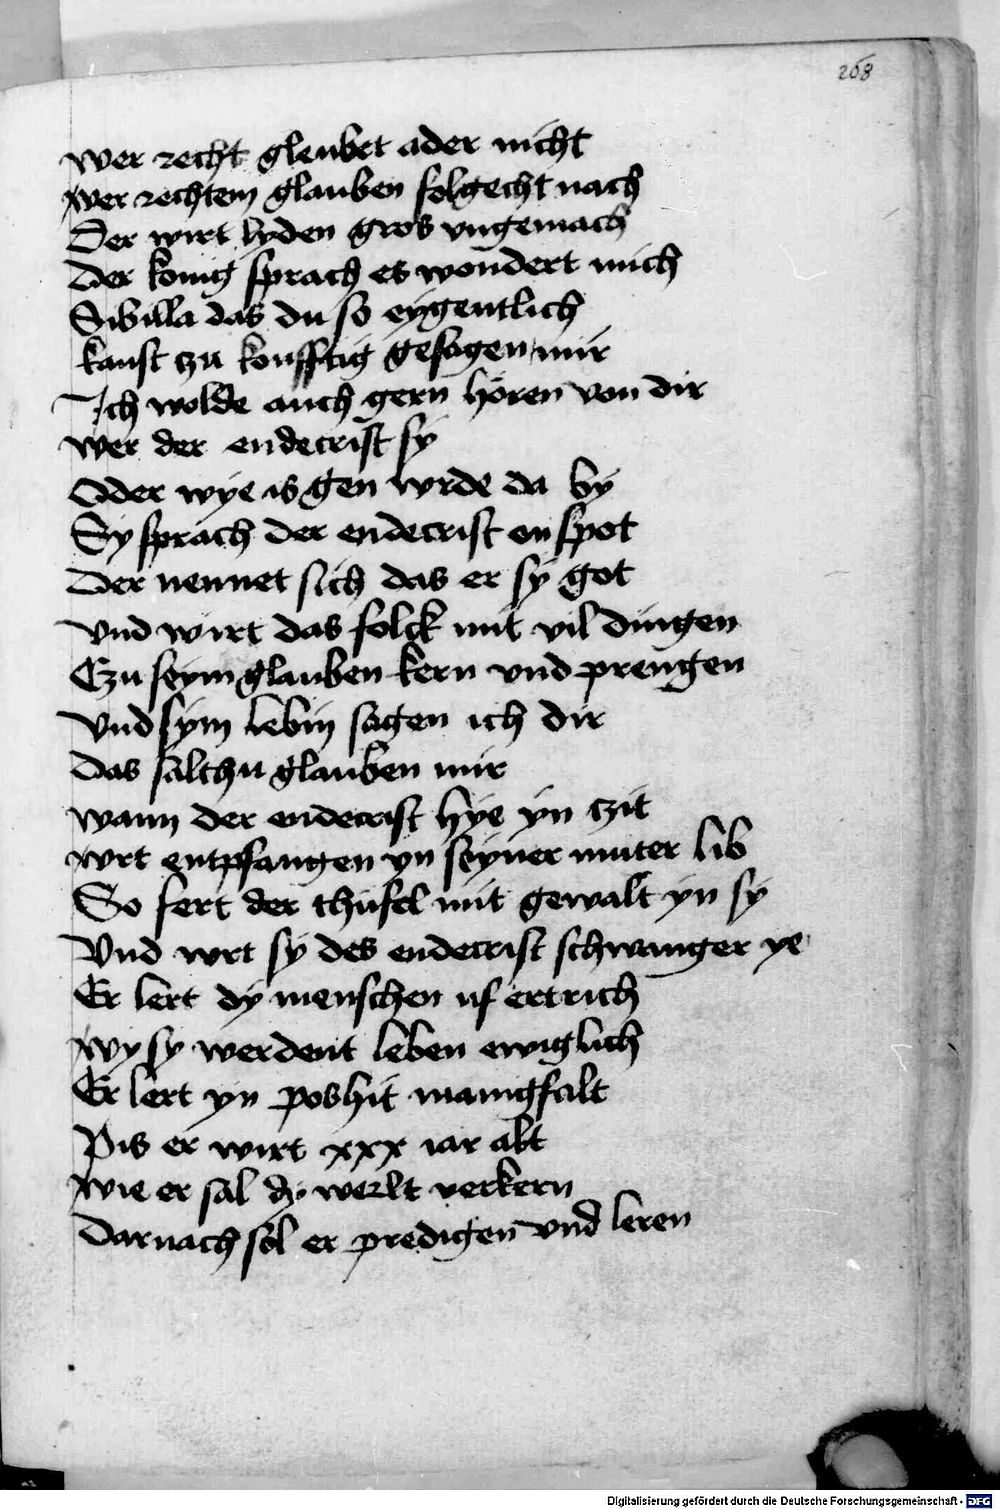 268
wer recht gleubet ader nicht
wer rechtem glauben folgecht nach
Der wirt lyden gros vngemach
Der konig sprach es wondert mich
Sibilla das du so eygentlich
kanst tzu konfftig gesagen mir
Ich wolde auch gern hören von dir
wer der endecrist sy
Oder wye is gen wrde da by
Sy sprach der endecrist on spot
Der nennet sich das er sy got
vnd wirt das folck mit vil dingen
Czu seym glauben kern vnd prengen
Vnd sym lebin sagen ich dir
Das salthu glauben mir
wann der endecrist hye yn tzit
wrt entpfangen yn seyner muter lib
So fert der thufel mit gewalt yn sy
Vnd wrt sy des endecrist schwanger ye
Er lert dy menschen uf ertrich
wy sy werdent leben ewiglich
Er lert yn poshit manigfalt
Pis er wirt xxx iar alt
wie er sal dy werlt verkern
Darnach sol er predigen vnd leren
Digitalisierung gefördert durch die Deutsche Forschungsgemeinschaft - DFG